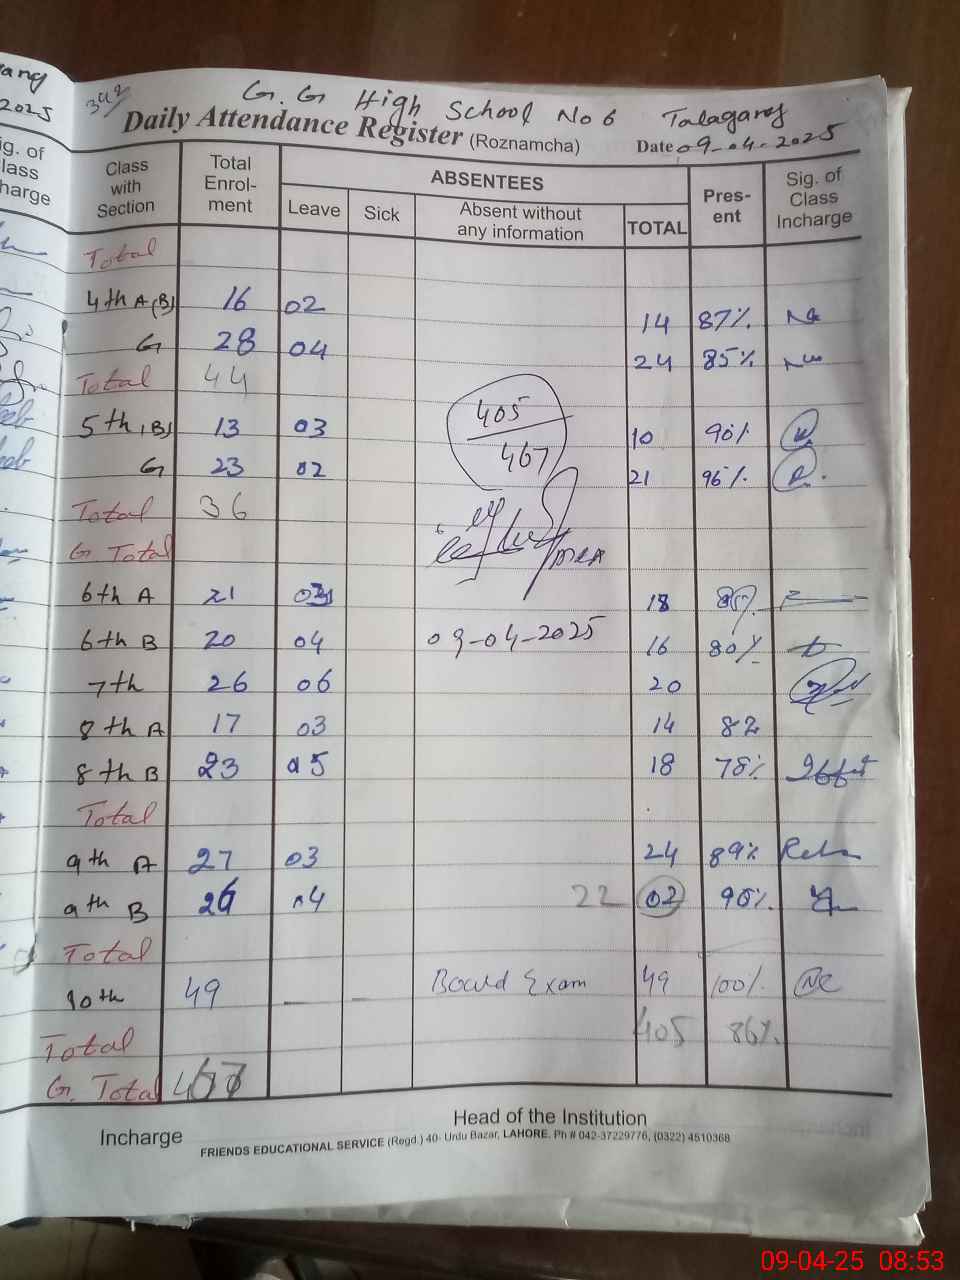 ang
2025
ig. of
lass
harge
342
G. G High School No 6 Talagang
Daily Attendance Register (Roznamcha) Date 09-04-2025
Class with Section Total Enrol-ment ABSENTEES Pres-ent Sig. of Class Incharge
Leave Sick Absent without any information TOTAL
Total
4th A (B) 16 02 14 87%
G 28 04 24 85%
Total 44
405
467
5th (B) 13 03 10 90%
G 23 02 21 96%
Total 36
G. Total
6th A 21 18
6th B 20 04 09-04-2025 16 80%
7th 26 06 20
8th A 17 03 14 82
8th B 23 05 18 78% Iffat
Total
9th A 27 03 24 89%
9th B 26 04 22 02 90%
Total
10th 49 — — Board Exam 49 100%
Total 405 86%
G. Total 467
Incharge Head of the Institution
FRIENDS EDUCATIONAL SERVICE (Regd.) 40- Urdu Bazar, LAHORE. Ph # 042-37229776, (0322) 4510368
09-04-25 08:53